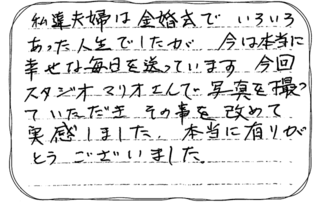 私達夫婦は金婚式で いろいろ
あった人生でしたが 今は本当に
幸せな毎日を送っています 今回
スタジオマリオさんで写真を撮っ
ていただき その事を改めて
実感しました、本当に有りが
とう ございました。